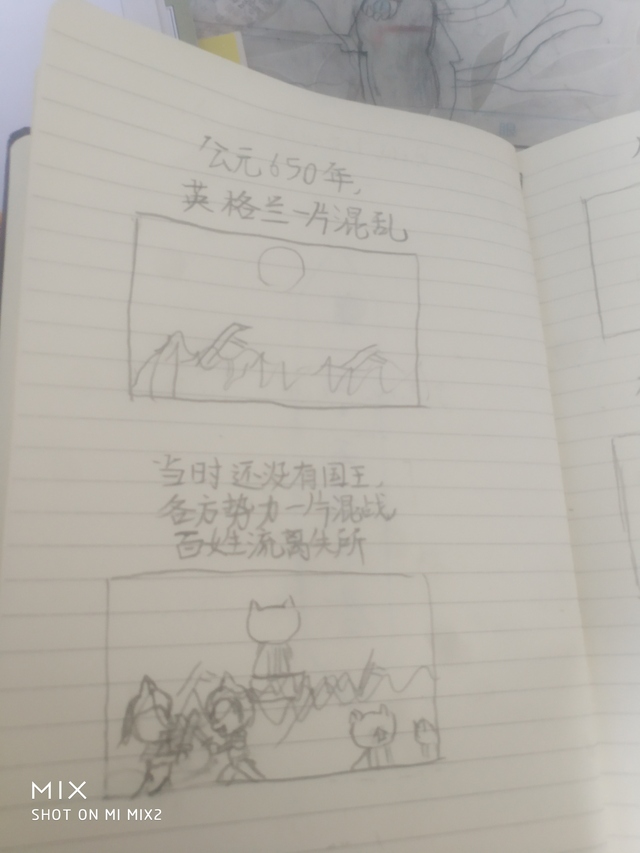 公元650年,
英格兰一片混乱
当时还没有国王,
各方势力一片混战
百姓流离失所
MIX
SHOT ON MI MIX2